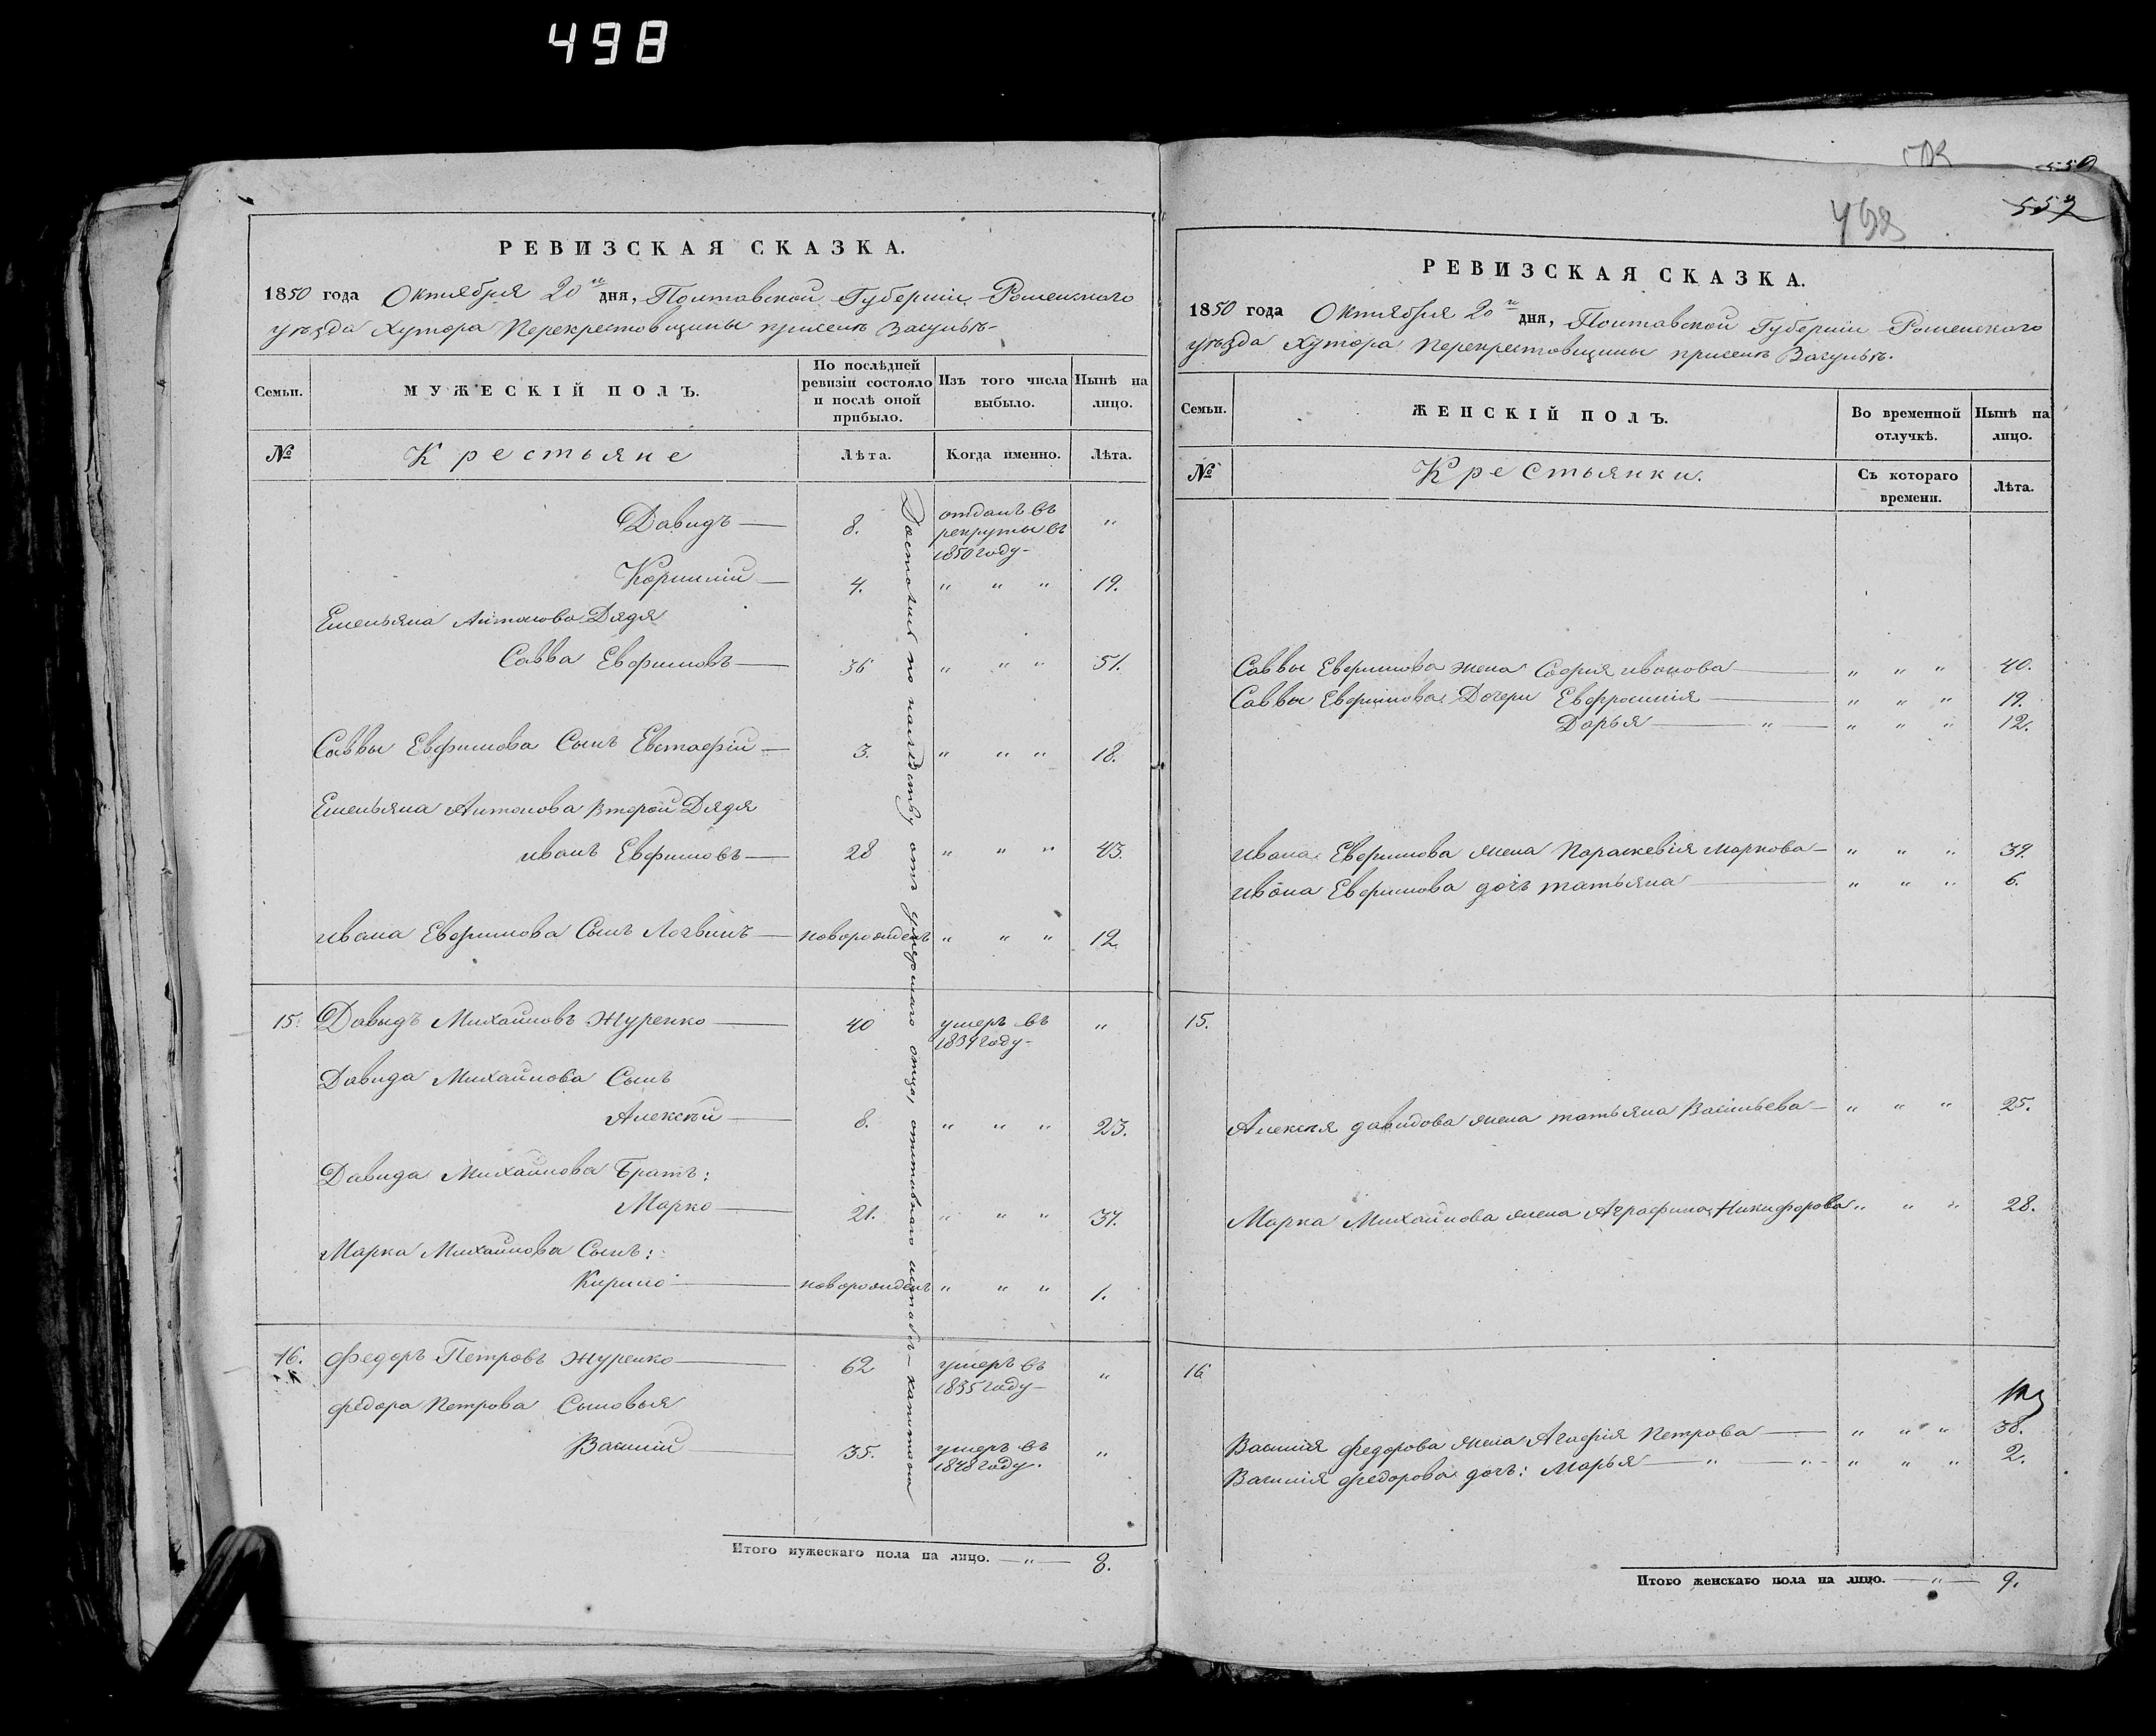 498
РЕВИЗСКАЯ СКАЗКА.
1850 года Октября 20го дня, Полтавской Губерніи Роменского
уѣзда Хутора Перекрестовщины
Семьи.
МУЖЕСКІЙ ПОЛЪ.
По послѣдней ревизіи состояло и послѣ оной прибыло.
Изъ того числа выбыло.
Нынѣ на лицо.
№ Крестьяне Лѣта. Когда именно. Лѣта.
Давидъ — 8. отданъ въ рекруты въ 1850 году — "
Корнилій — 4. " " " 19.
Емельяна Антонова Дядя
Савва Евфимовъ — 36 " " " 51.
Саввы Евфимова Сынъ Евстафій — 3. " " " 18.
Емельяна Антонова Второй Дядя
иванъ Евфимовъ — 28 " " " 43.
ивана Евфимова Сынъ Логвинъ — новорожденъ " " " 12.
15. Давыдъ Михайловъ Журенко — 40 умеръ въ 1839 году — "
Давида Михайлова Сынъ
Алексѣй — 8. " " " 23.
Давида Михайлова Братъ:
Марко — 21. " " " 37.
Марка Михайлова Сынъ:
Кирило — новорожденъ " " " 1.
16. Федоръ Петровъ Журенко — 62 умеръ въ 1835 году — "
Федора Петрова Сыновья
Василій — 35. умеръ въ 1848 году. "
Достались по наслѣдству отъ умершаго отца,
Итого мужескаго пола на лицо. — " — 8.
550
557
498
РЕВИЗСКАЯ СКАЗКА.
1850 года Октября 20го дня, Полтавской Губерніи Роменского
уѣзда Хутора Перекрестовщины
Семьи.
ЖЕНСКІЙ ПОЛЪ.
Во временной отлучкѣ.
Нынѣ на лицо.
№ Крестьянки. Съ котораго времени. Лѣта.
Саввы Евфимова жена София иванова — " " " 40.
Саввы Евфимова Дочери Евфросинія — " " " 19.
Дарья — " — " " " 12.
ивана Евфимова жена Параскевія маркова — " " " 39.
ивана Евфимова дочь татьяна — " " " 6.
15.
Алексѣя давидова жена татьяна Васильева — " " " 25.
Марка Михайлова жена Аграфина Никифорова " " " 28.
16
Василія Федорова жена Агафія Петрова — " " " 38.
Василія Федорова дочь: Марья — " — " — " " " 2.
Итого женскаго пола на лицо. — " — 9.